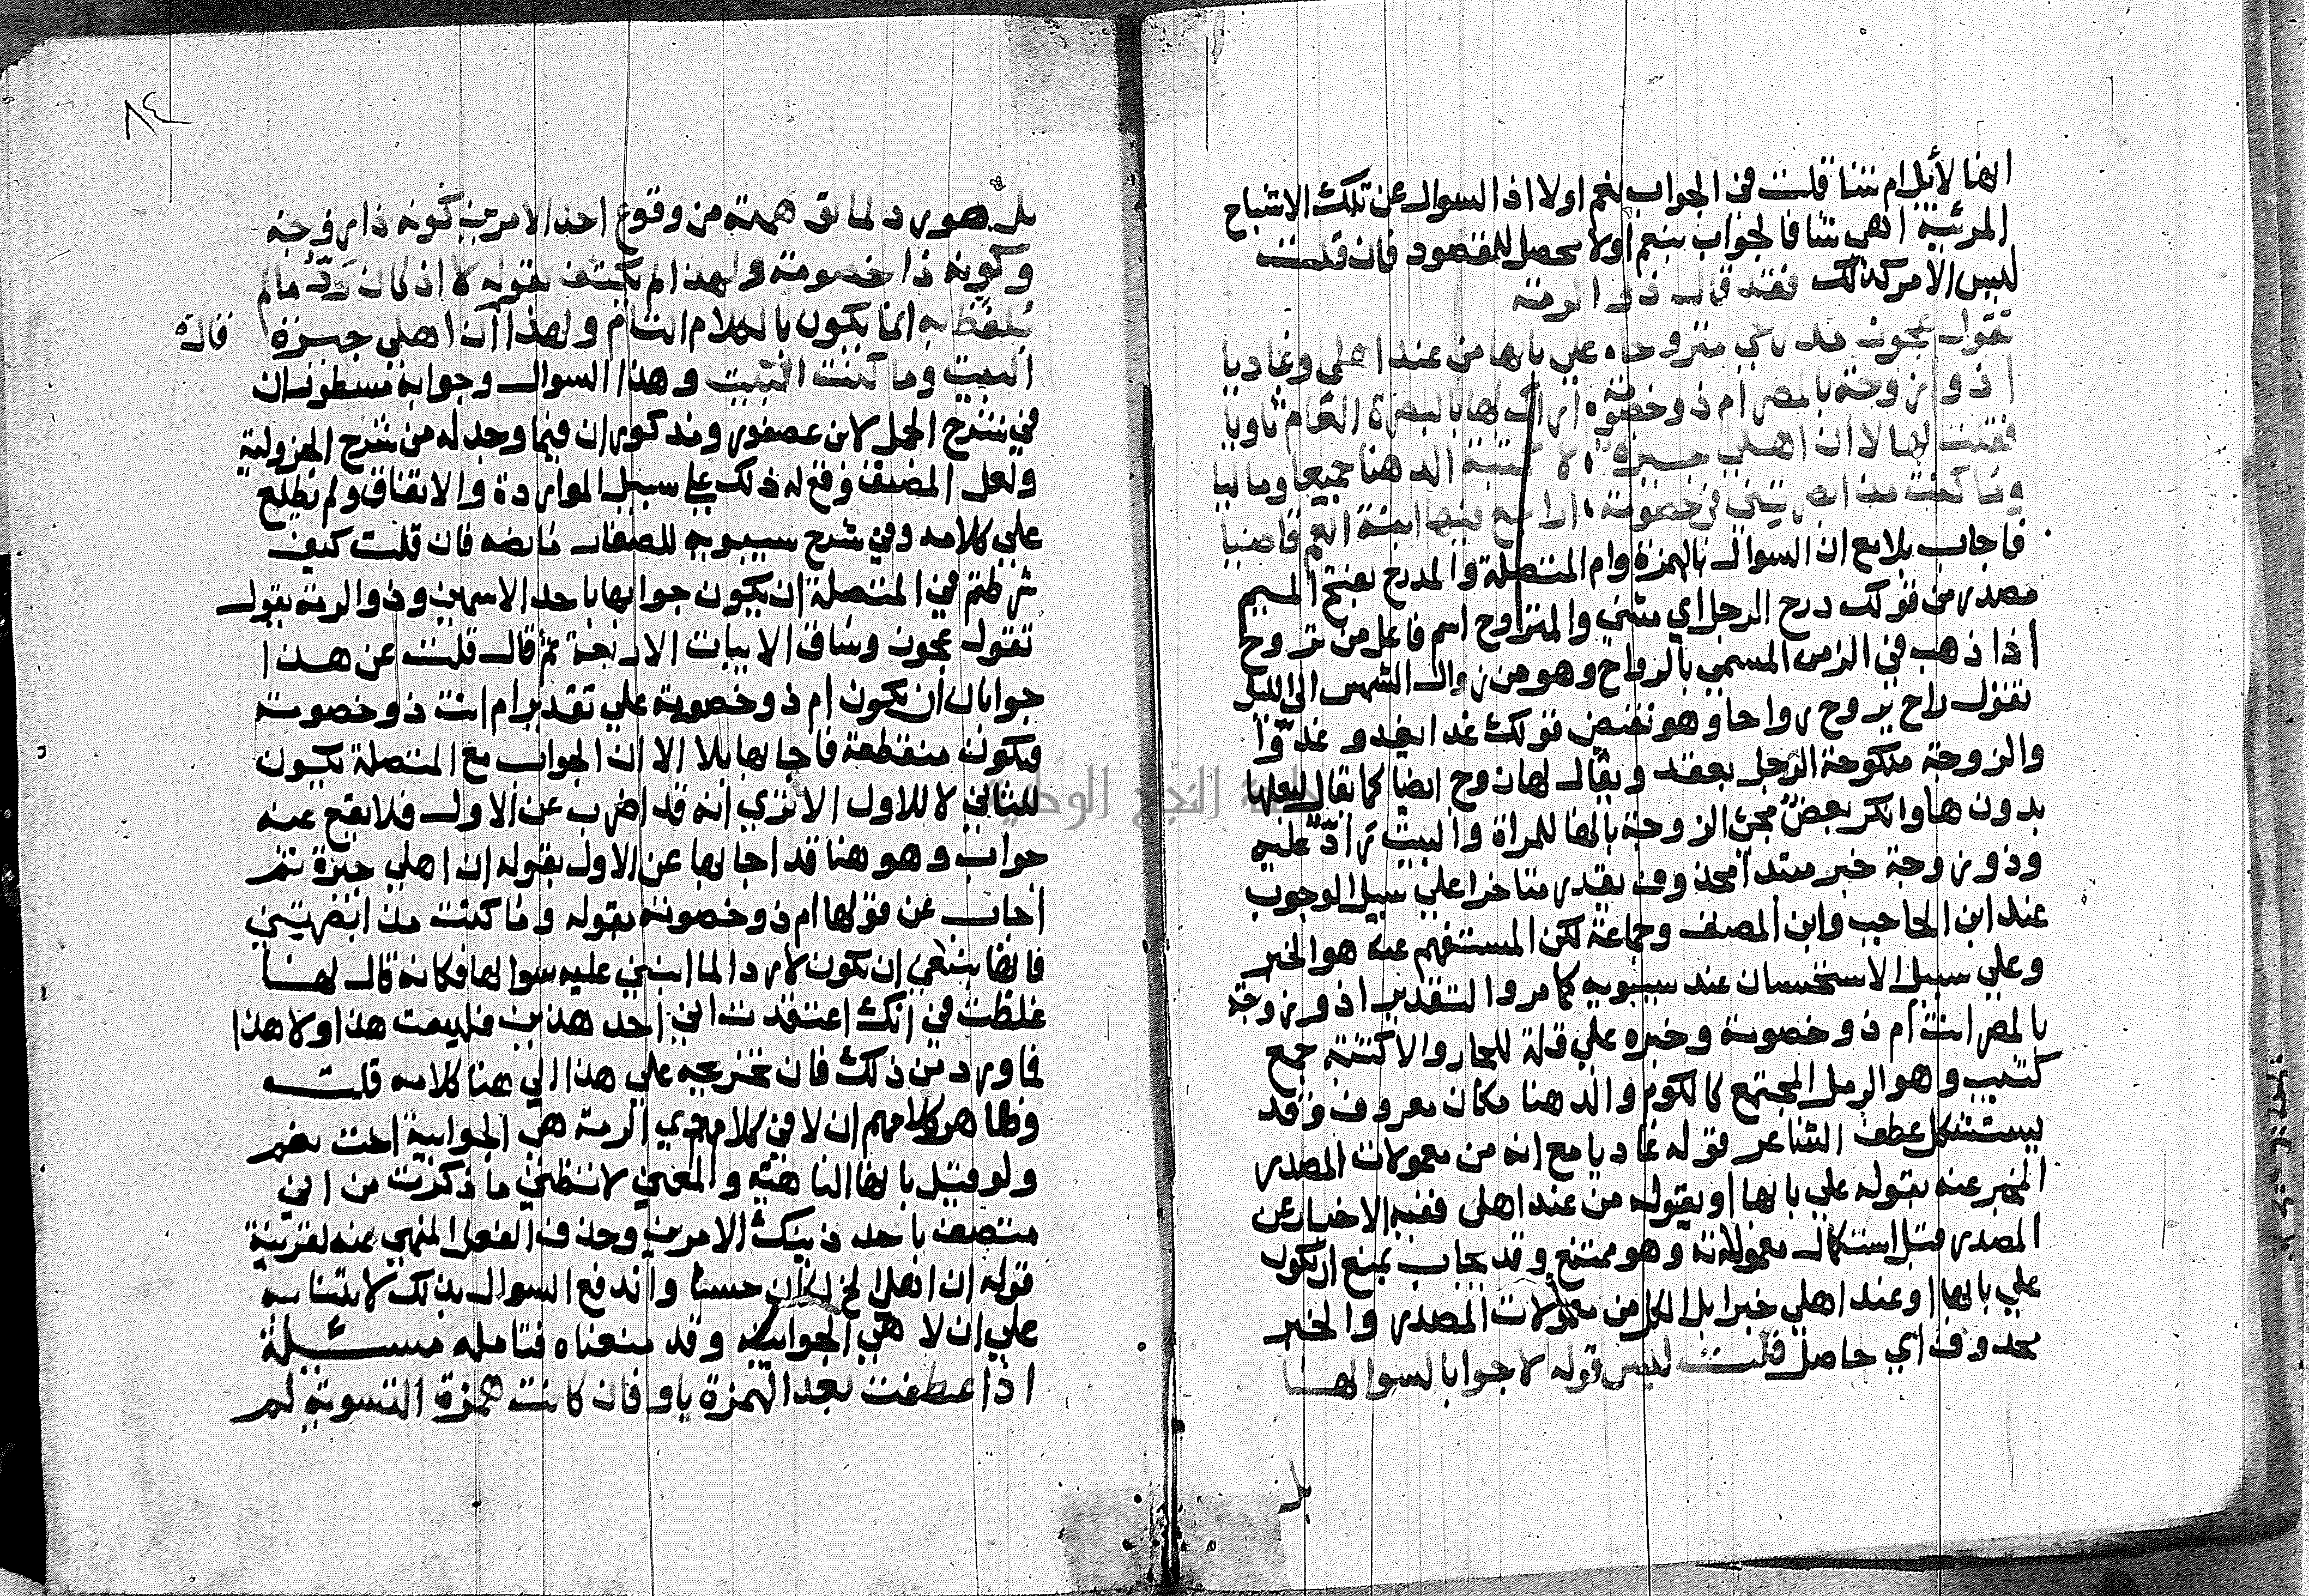 انها لابل ام شا قلت في الجواب نعم اولا اذ السوال عن تلك الاشباح
المرئية اهي شا فالجواب بنعم اولا محصل للمقصود فان قلت
ليس الامر كذلك فقد قال ذو الرمة
تقول عجوز مدرجي متروحا على بابها من عند اهلي وغاديا
اذو زوجة بالمصر ام ذو خصومة اراك لها بالبصرة العام ثاويا
فقلت لها لا ان اهلي جيرة لاكثبة الدهنا جميعا وماليا
وما كنت مذ ابصرتني في خصومة اراجع فيها ابنة العم قاضيا
فاجاب بلا مع ان السوال بالهمزة وام المتصلة والمدرج بفتح الميم
مصدر من قولك درج الرجل اي مشى والمتروح اسم فاعل من تروح
اذا ذهب في الزمن المسمي بالرواح وهو من زوال الشمس الى الليل
تقول راح يروح رواحا وهو نقيض قولك غدا يغدو غدوا
والزوجة منكوحة الرجل بعقد ويقال لها زوج ايضا كما يقال لبعلها
بدون ها وانكر بعض مجئ الزوجة بالها للمراة والبيت راد عليه
وذو زوجة خبر مبتدا محذوف يقدر متاخرا على سبيل الوجوب
عند ابن الحاجب وابن المصنف وجماعة لكن المستفهم عنه هو الخبر
وعلي سبيل الاستحسان عند سيبويه كما مر والتقدير اذو زوجة
بالمصر انت ام ذو خصومة وخبره علي قلة للجار والاكثبة جمع
كثيب وهو الرمل المجتمع كالكوم والدهنا مكان معروف وقد
يستشكل عطف الشاعر قوله غاديا مع انه من معمولات المصدر
المخبر عنه بقوله علي بابها او بقوله من عند اهلي ففيه الاخبار عن
المصدر قبل استكمال معمولاته وهو ممتنع وقد يجاب بمنع ان يكون
علي بابها او عند اهلي خبرا بل الكل من معمولات المصدر والخبر
محذوف اي حاصل قلت ليس قوله لا جوابا لسوالها
بل
٨٤
بل هو رد لما توهمته من وقوع احد الامرين كونه ذا زوجة
وكونه ذا خصومة ولهذا لم يكتف بقوله لا اذ كان رد ما لم
تلفظ به انما يكون بالكلام التام ولهذا ان اهلي جيرة
البيت وما كنت البيت وهذا السوال وجوابه مسطوران
في شرح الجمل لابن عصفور ومذكوران فيما وجد له من شرح الجزولية
ولعل المصنف وقع له ذلك علي سبيل المواردة والاتفاق ولم يطلع
علي كلامه وفي شرح سيبويه للصفار ما نصه فان قلت كيف
شرطتم في المتصلة ان يكون جوابها باحد الاسمين وذو الرمة يقول
تقول عجوز وساق الابيات الاربعة ثم قال قلت عن هذا
جوابان ان تكون ام ذو خصومة علي تقدير ام انت ذو خصومة
فتكون منقطعة فاجابها بلا الا ان الجواب مع المتصلة يكون
للثاني لا للاول الا تري انه قد اضرب عن الاول فلا يقع عنه
جواب وهو هنا قد اجابها عن الاول بقوله ان اهلي جيرة ثم
اجاب عن قولها ام ذو خصومة بقوله وما كنت مذ ابصرتني
فانها ينبغي ان تكون لا ردا لما انبني عليه سوالها فكانه قال لها
غلطت في انك اعتقدت اني احد هذين فليست هذا ولا هذا
فما ورد من ذلك فان تخريجه علي هذا الي هنا كلامه قلت
وظاهر كلامهم ان لا في كلام ذي الرمة هي الجوابية اخت نعم
ولو قيل بانها الناهية والمعني لا تظني ما ذكرت من اني
متصف باحد ذينك الامرين وحذف الفعل المنهي عنه لقرينة
قوله ان اهلي الخ لكان حسنا واندفع السوال بذلك لابتنائه
علي ان لا هي الجوابية وقد منعناه فتامله مسئلة
اذا عطفت بعد الهمزة باو فان كانت همزة التسوية لم